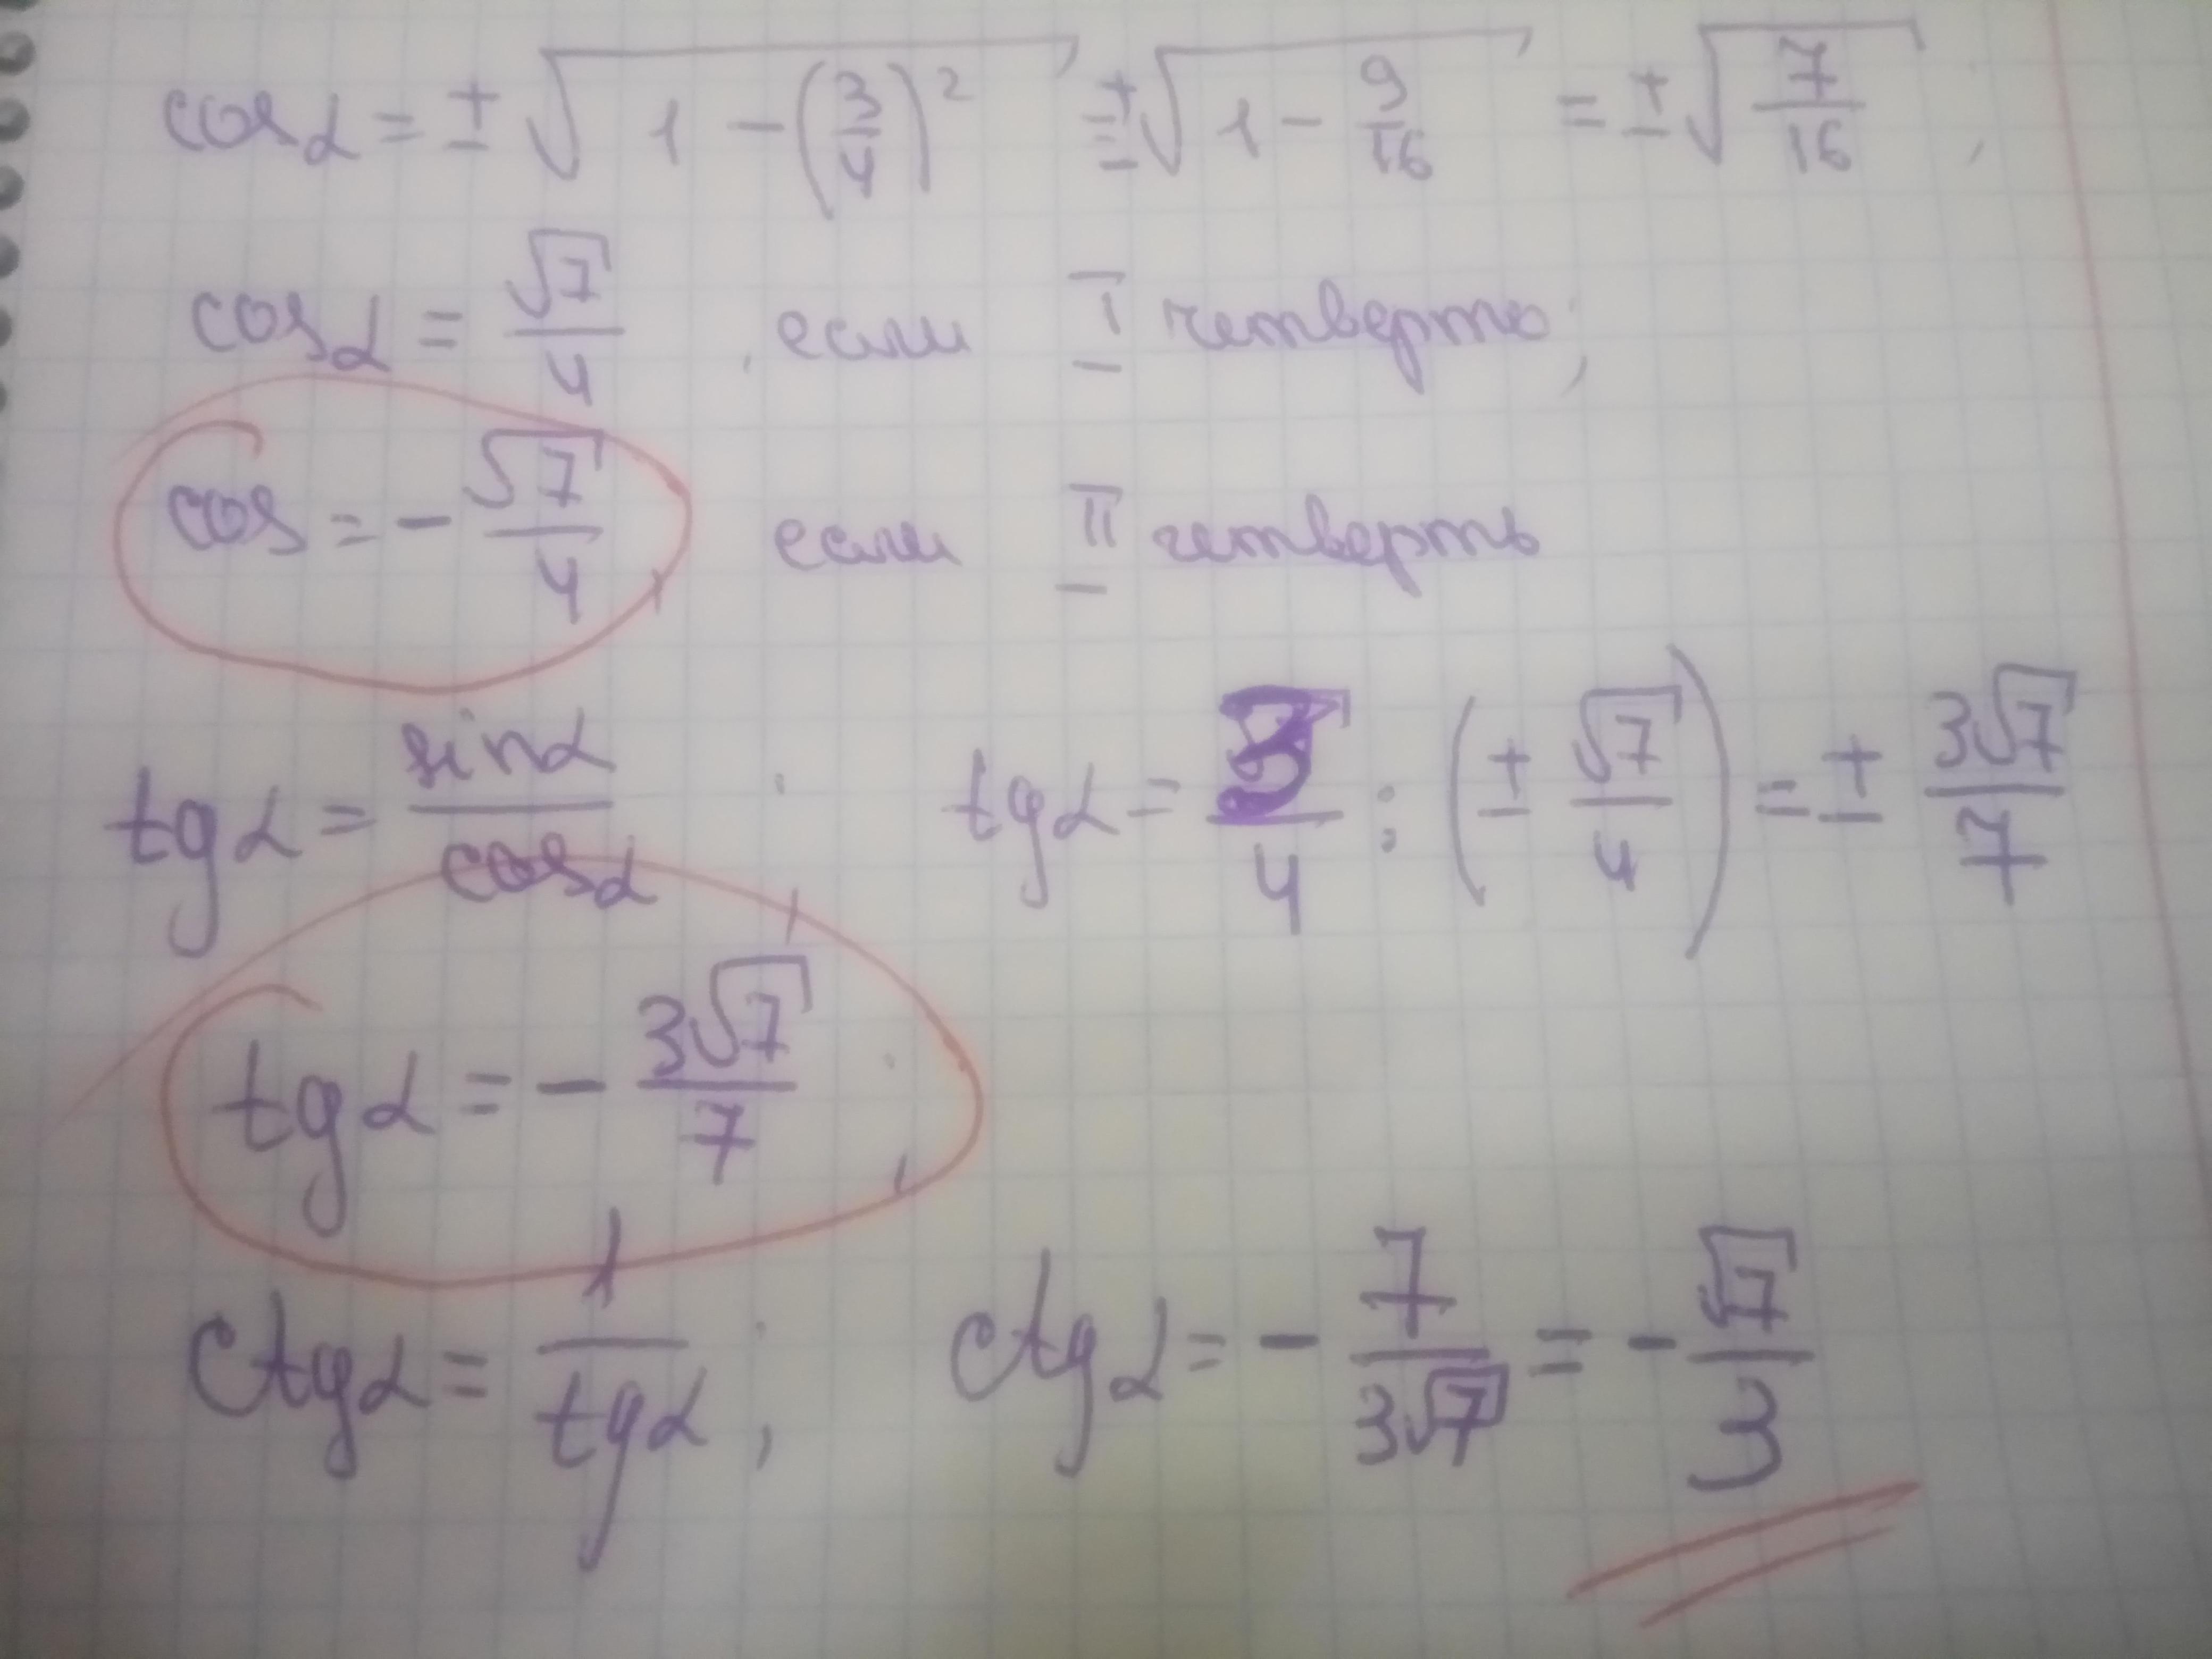 cosα = ± √(1 − (3/4)²) = ± √(1 − 9/16) = ± √(7/16) ;
cosα = √7/4 , если I четверть;
cos = − √7/4 , если II четверть
tgα = sinα/cosα ; tgα = 3/4 : (± √7/4) = ± 3√7/7
tgα = − 3√7/7 ,
ctgα = 1/tgα ; ctgα = − 7/3√7 = − √7/3